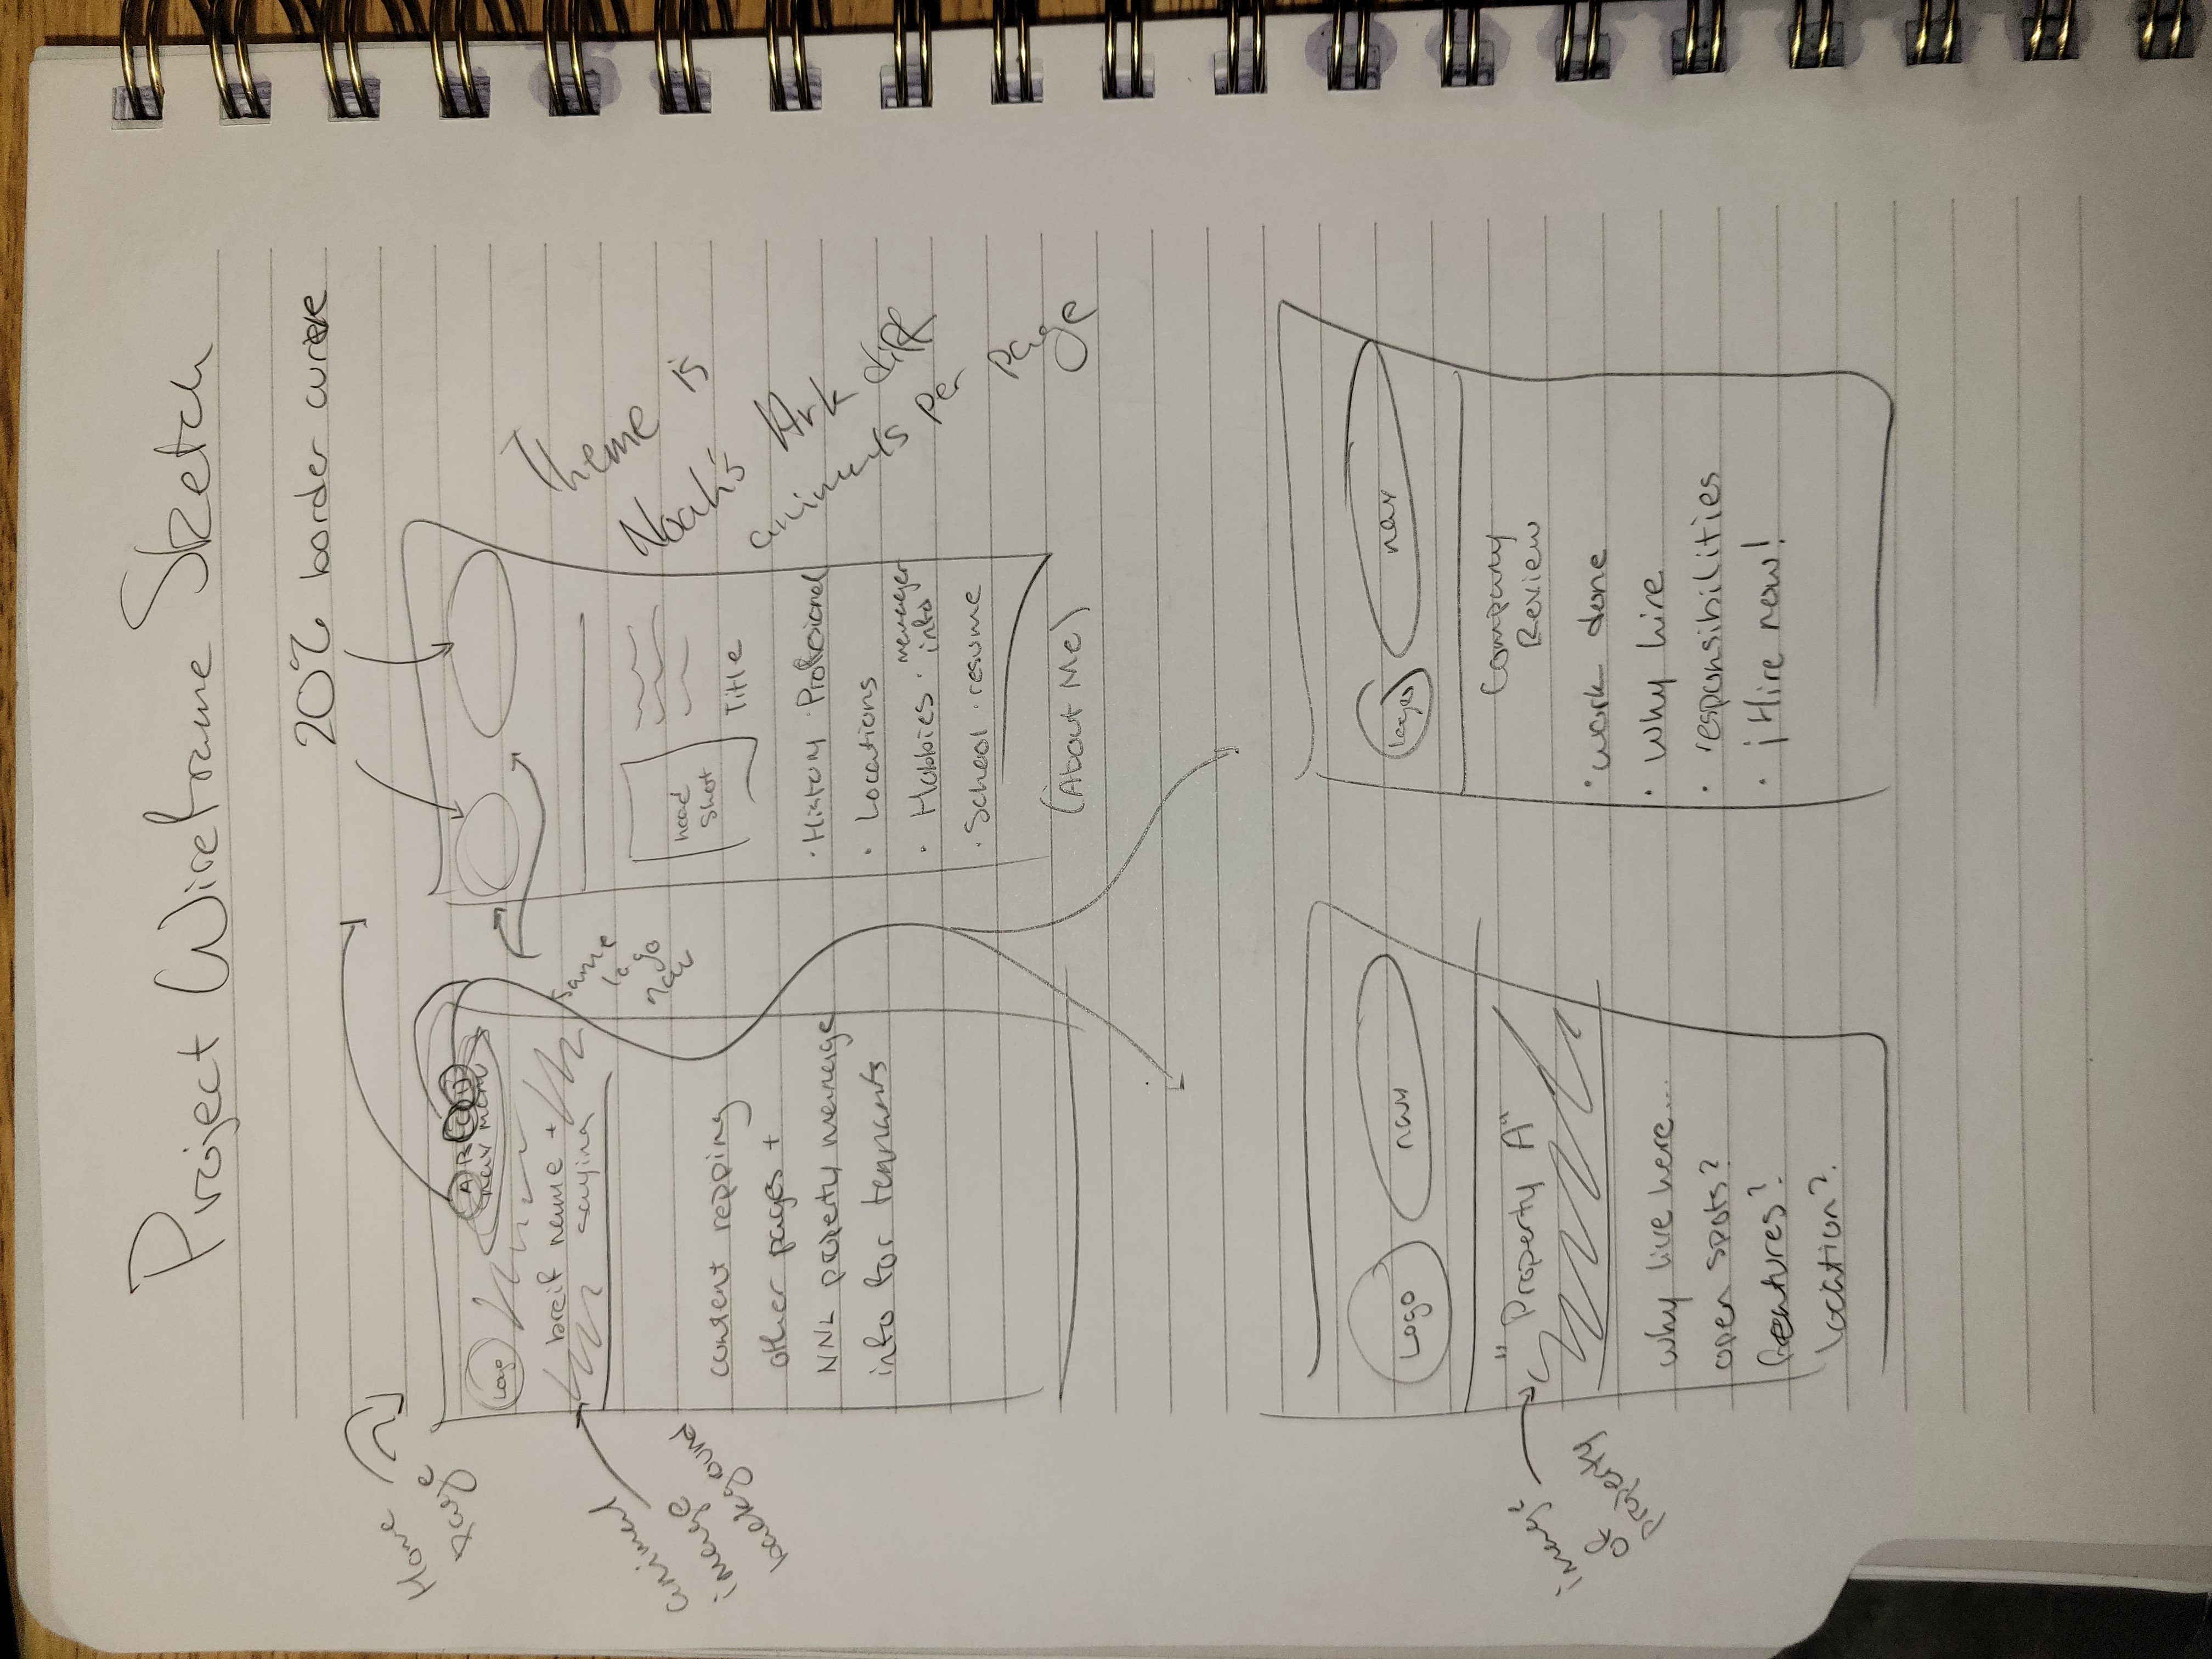 Project Wireframe Sketch
20% border curve
Home
Page
A B C D
nav menu
Logo
breif name +
saying
animal
image
background
content repping
other pages +
NNL property manage
info for tennants
same
logo
nav
head
shot
Title
· History · Profesional
· Locations
· Hobbies · manager
info
· School · resume
(About Me)
Theme is
Noah's Ark diff
animals per page
Logo
nav
"Property A"
image
of
property
why live here...
open spots?
features?
location?
Logo
nav
Company
Review
· work done
· why hire
· responsibilities
· ¡Hire now!